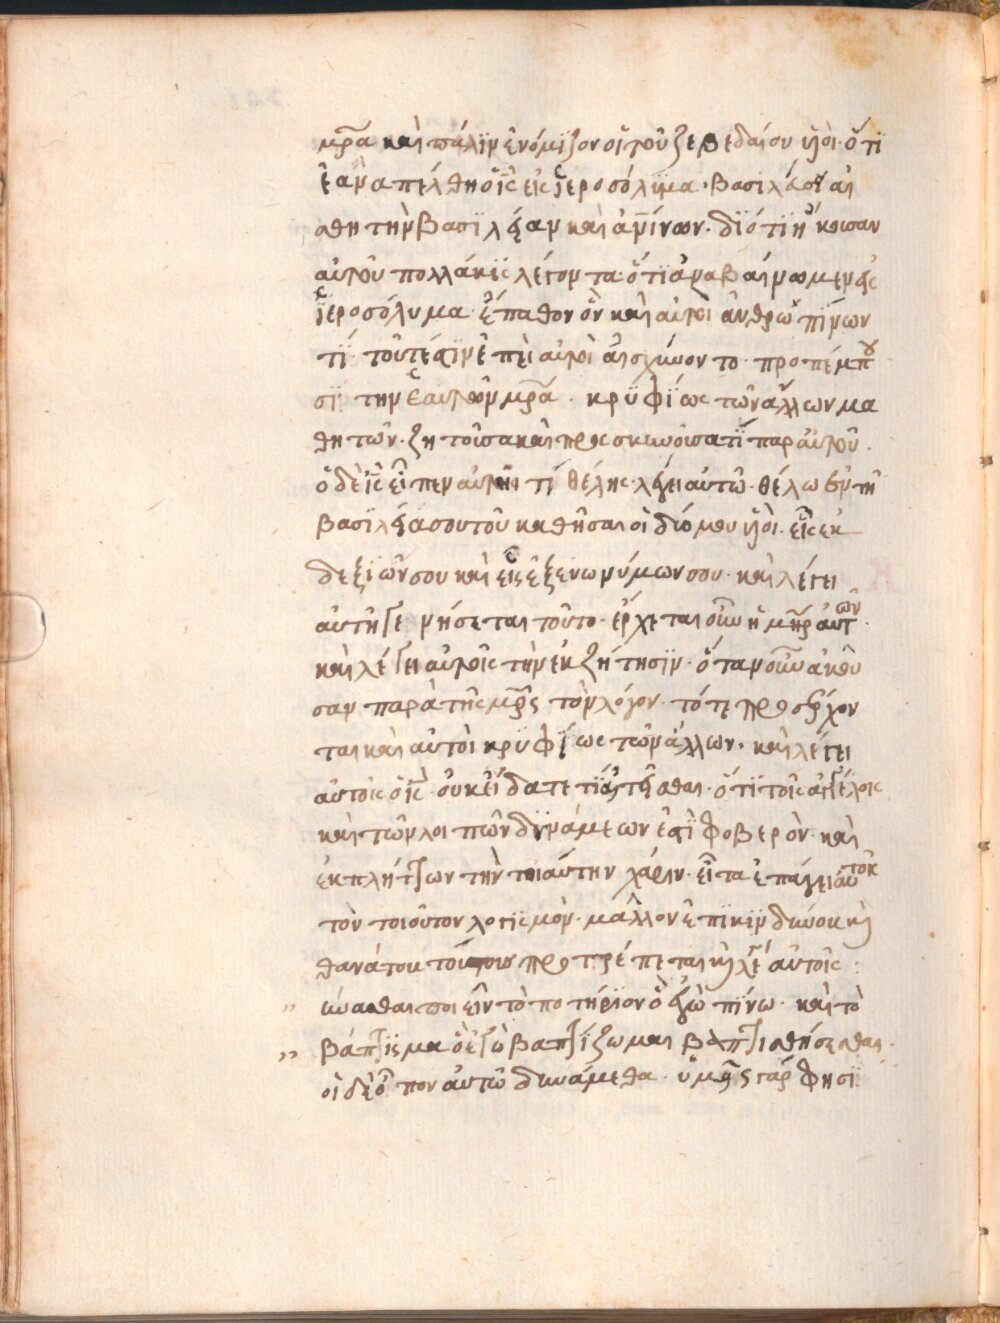 μρ̅α καὶ πάλϊν ἐνόμϊζον οἱ τοῦ ζεβεδαίου υἱοὶ· ὅτϊ
ἐὰν ἀπέλθη ὁ ι̅ς̅ εἰς ἱεροσόλϋμα· βασϊλ
τὴν βασϊλείαν καὶ διότϊ ἤκουσαν
αὐτοῦ πολλάκϊς λέγοντα· ὅτϊ ἀναβαίνωμεν εἰς
ἱεροσόλυμα· ἔπαθον οὖν καὶ αὐτοὶ ἀνθρώπϊνων
τϊ· τοῦτέστϊν ἐπεὶ αὐτοὶ αἰσχύνοντο· προπέμπου
σϊ τὴν ἑαυτῶν μρ̅α· κρϋφϊως τῶν ἄλλων μα
θητῶν· ζητοῦσα καὶ προσκυνοῦσα τϊ παρ αὐτοῦ·
ὁ δὲ ι̅ς̅ εἶπεν αὐτῆ τί θέλης· λέγει αὐτῶ· θέλω ἐν τῆ
βασϊλείασου τοῦ καθῆσαι οἱ δύο μου υἱοὶ· εἷς ἐκ
δεξϊῶν σου καὶ εἷς ἐξ ἐυωνύμων σου· καὶ λέγει
αὐτῆ γενήσεται τοῦτο· ἔρχεται οὖν ἡ μη̅ρ αὐτῶν·
καὶ λέγει αὐτοῖς τὴν ἐκζήτησϊν· ὅταν οὖν ἀκού
σαν παρὰ τῆς μρ̅ς τὸν λόγον· τότε προσέρχον
ται καὶ αὐτοὶ κρϋφϊως τῶν ἄλλων· καὶ λέγει
αὐτοῖς ὁ ι̅ς̅· οὐκ οἴδατε τϊ αἰτεῖσθαι· ὅτϊ τοῖς ἀγγέλοις
καὶ τῶν λοιπῶν δϋνάμεων ἐστϊ φοβερὸν· καὶ
ἐκπλήττων τὴν τοιαύτην χάριν· εἶτα ἐπάγει αὐτοῖς
τὸν τοιοῦτον λογϊσμὸν· μᾶλλον ἐπϊ κϊνδύνοις κὶ
θανάτοις τούτους προτρέπεται κὶ λέγει αὐτοῖς·
δύνασθαι ποιεῖν τὸ ποτήρϊον ὃ ἐγὼ πϊνω· καὶ τὸ
βάπτϊσμα ὃ ἐγὼ βαπτϊζωμαι βαπτϊσθήσεσθαι·
οἱ δὲ εἶπον αὐτῶ δυνάμεθα· ὑμεῖς γάρ φησϊ